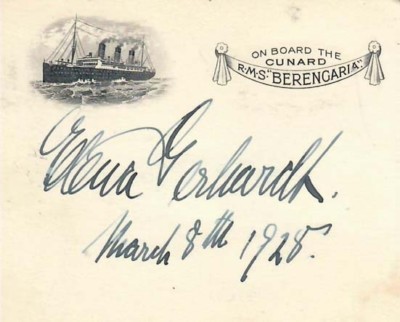 ON BOARD THE
CUNARD
R·M·S "BERENGARIA".
Elena Gerhardt.
March 8th 1928.